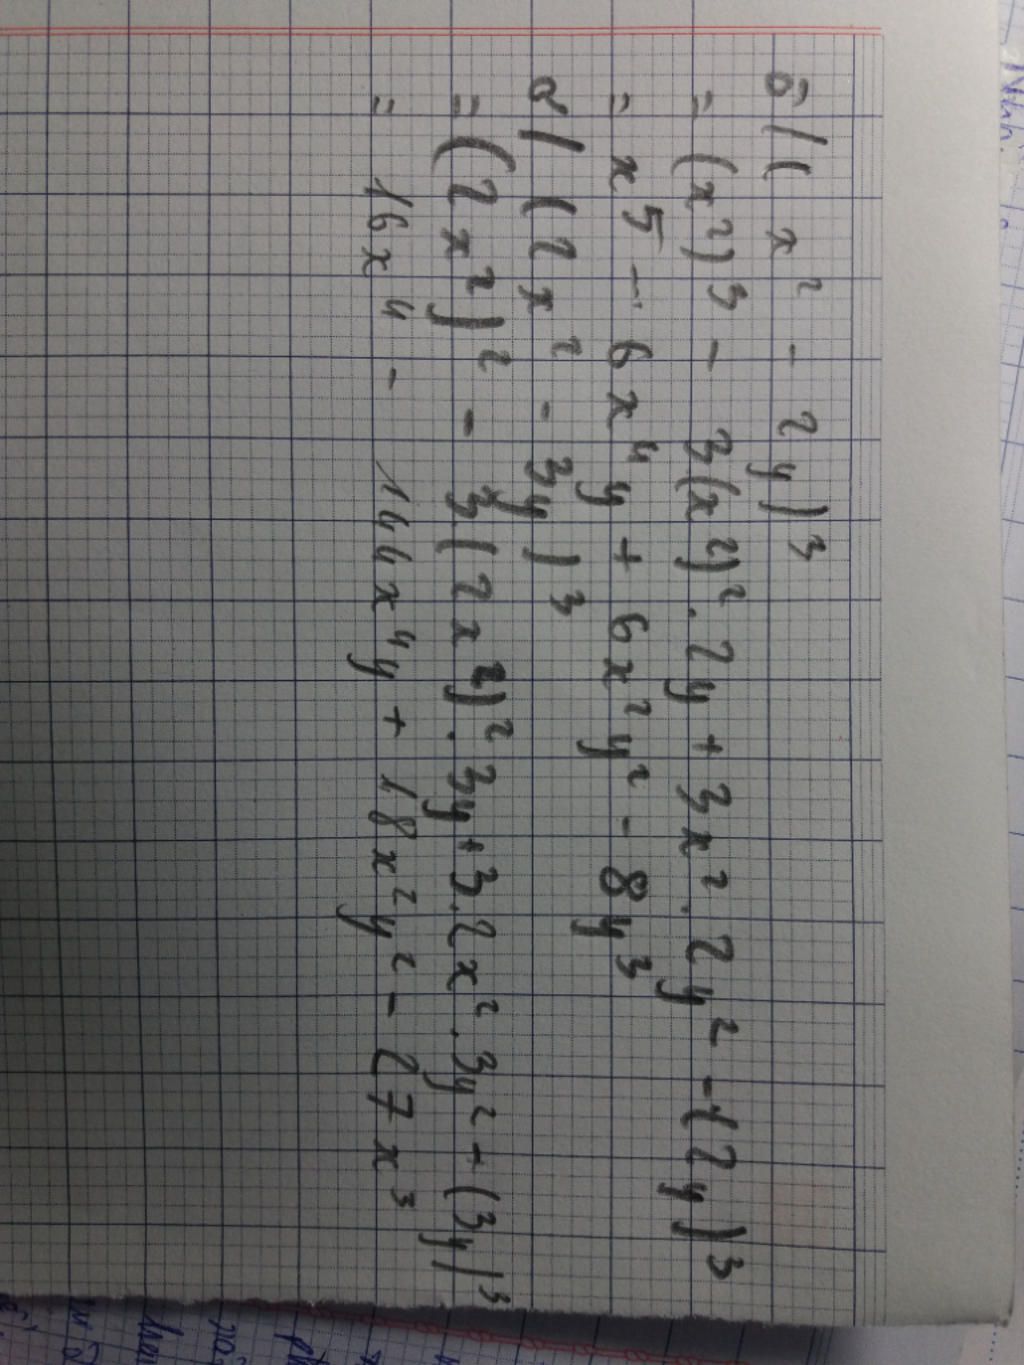 c/ (x² - 2y)³
= (x²)³ - 3(x²)². 2y + 3x². 2y² - (2y)³
= x⁵ - 6x⁴y + 6x²y² - 8y³
d/ (2x² - 3y)³
= (2x²)² - 3.(2x²)². 3y + 3.2x². 3y² - (3y)³
= 16x⁴ - 144x⁴y + 18x²y² - 27x³